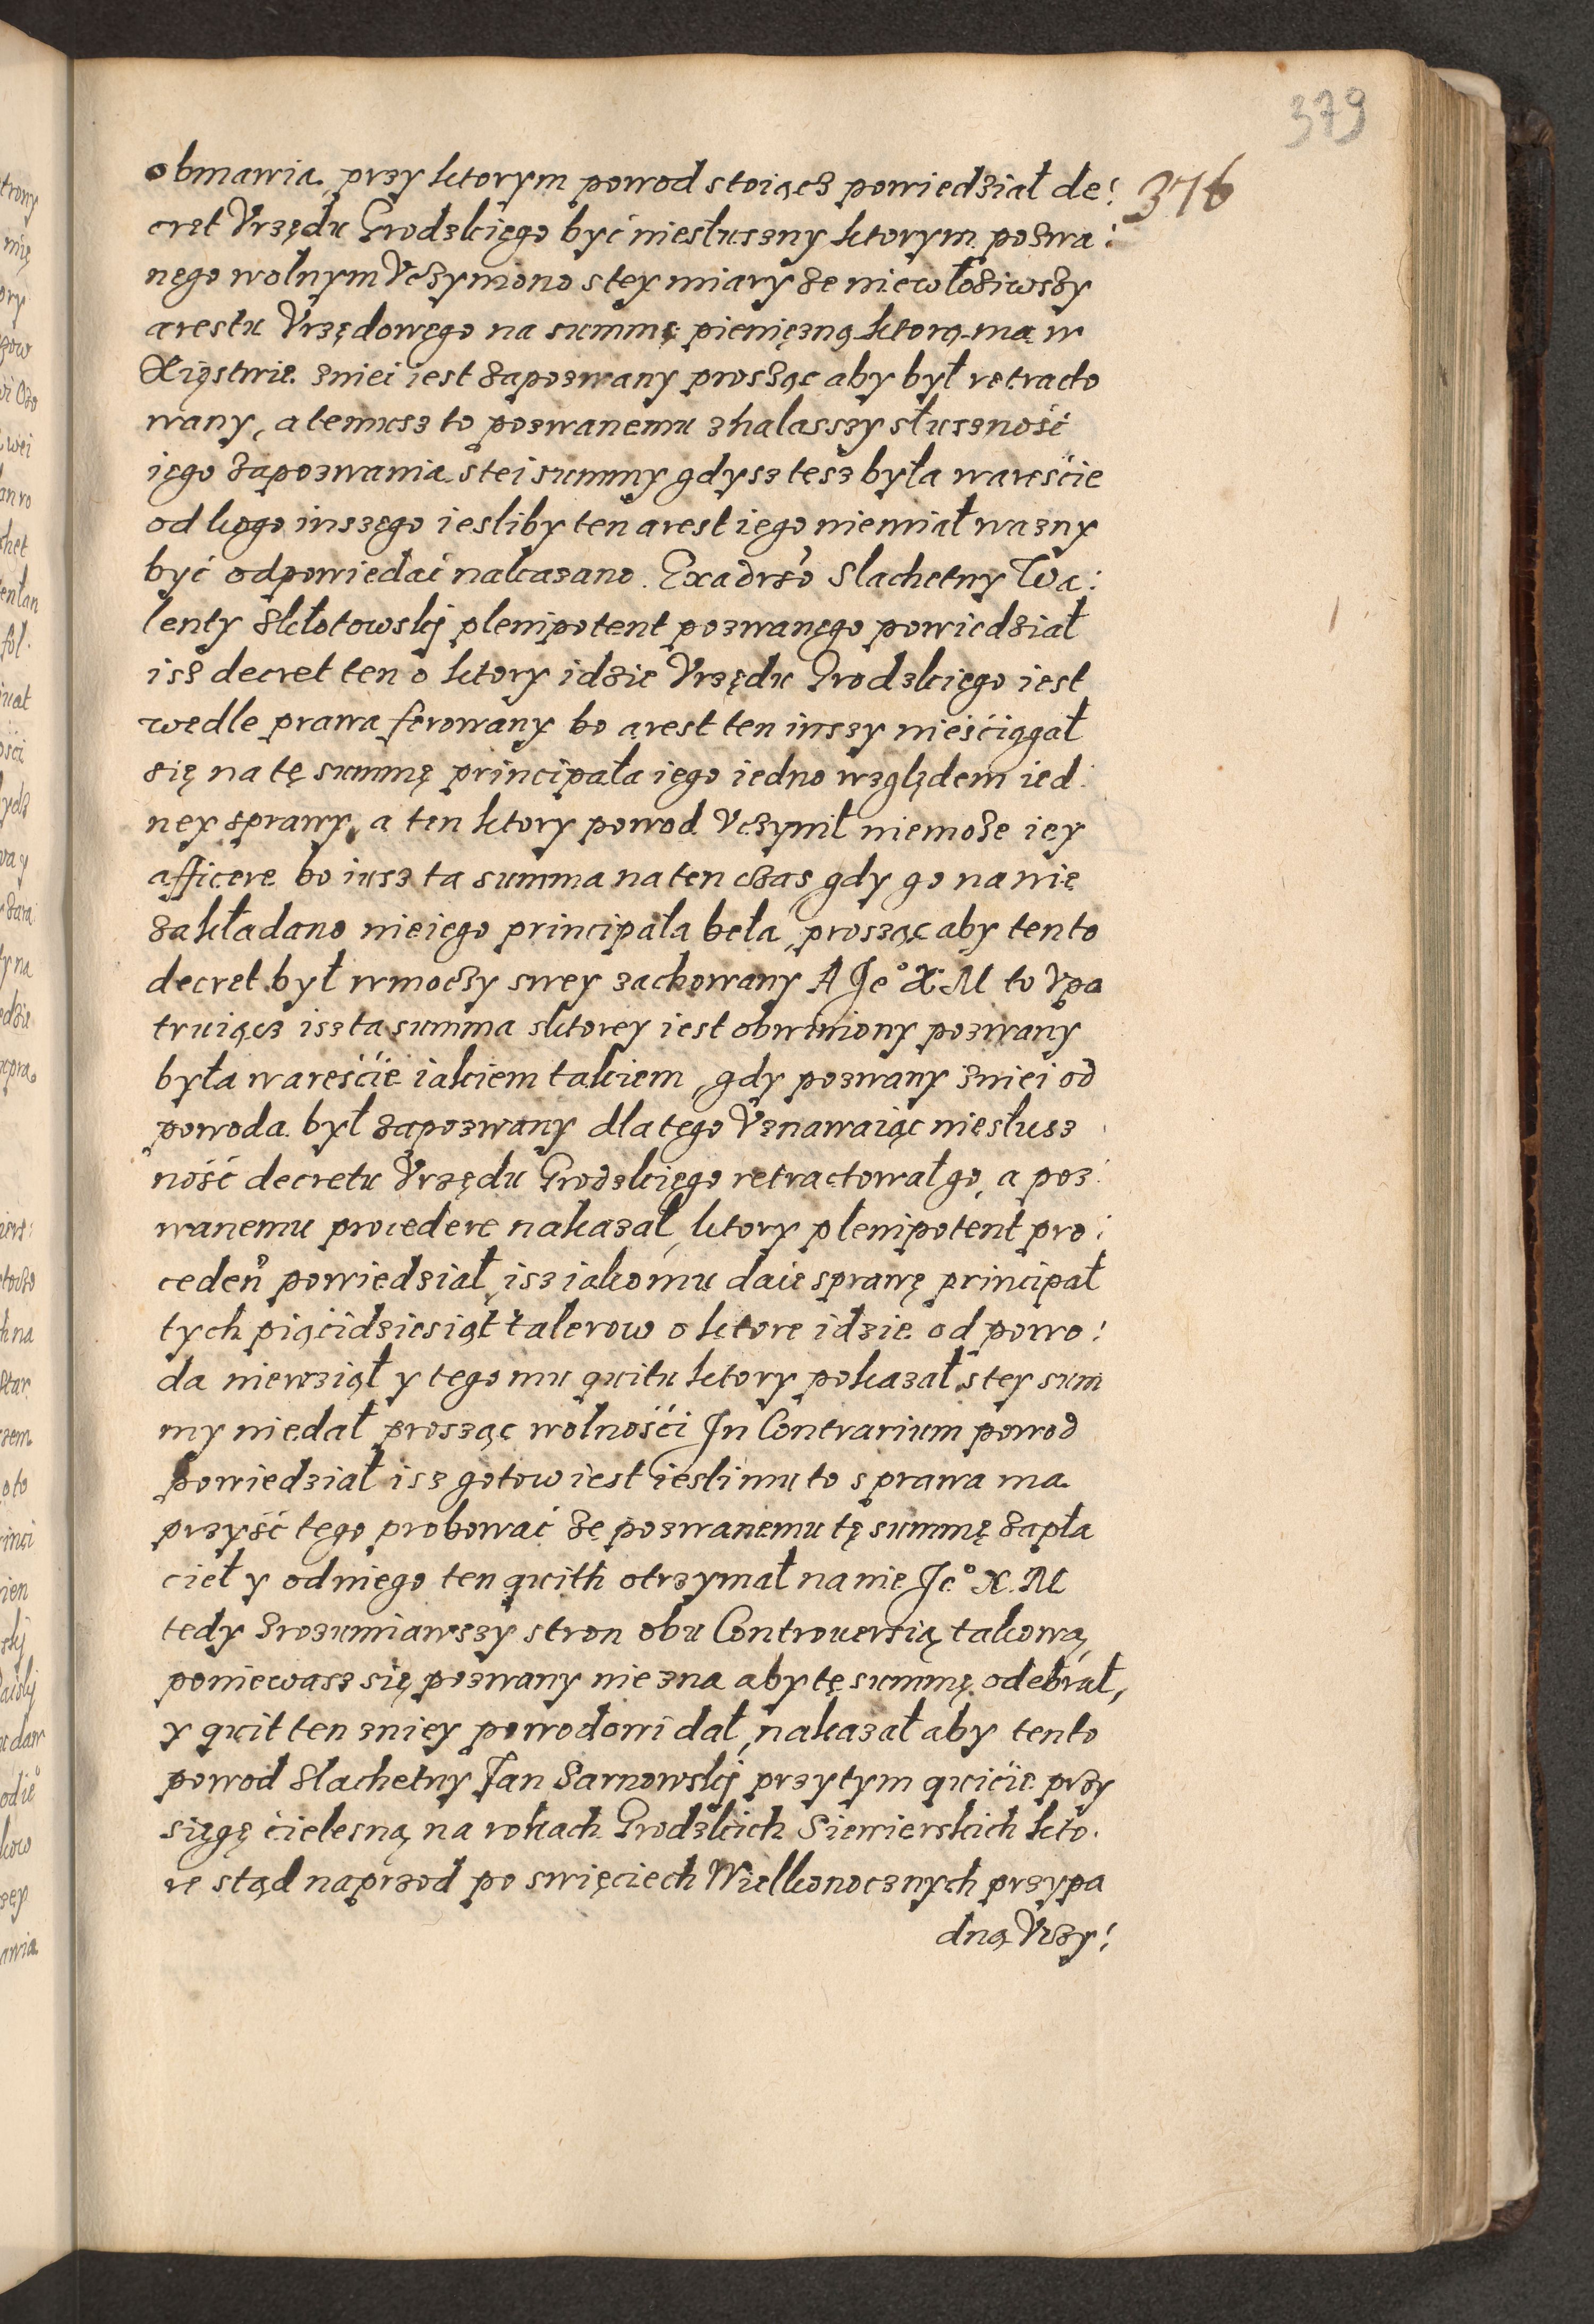 379
376
obmawia, przy ktorym powod stoiącz powiedział de:
cret Vrzędu Grodzkięgo być niesłuszny ktorym pozwa:
nęgo wolnym Vczymiono stey miary że niewłoźiwszy
arestu Vrzędowęgo na summę pienięzną ktorą ma w
Xięstwie zniei iest zapozwany prosząc aby był retracto
wany, a temusz to pozwanemu zhalasszy słuszność
ięgo zapozwania stei summy gdysz tesz była wareście
od kogo inszęgo iesliby ten arest iego niemiał wazny
być odpowiedać nakazano. Exadrso Slachetny Wa:
lenty Skłotowskÿ plenipotent pozwanęgo powiedział
isz decret ten o ktory idzie Vrzędu Grodzkięgo iest
wedle prawa ferowany bo arest ten inszy nieściągał
się na tę summę principała iego iedno względem ied
ney sprawy, a ten ktory powod Vczynił niemoże iey
afficere bo iusz ta summa na ten czas gdy go na nie
zakładano nie iego principała beła, prosząc aby tento
decret był wmoczy swey zachowany A Jeº X: M to Vpa
truiącz isz ta summa sktorey iest obwiniony pozwany
była wareście iakiem takiem, gdy pozwany zniei od
powoda był zapozwany dla tęgo Vznawaiąc niesłusz
ność decretu Vrzędu Grodzkięgo retractował go, a poz:
wanemu procedere nakazał, ktory plenipotent pro:
ceden powiedział, isz iako mu daie sprawę principał
tych pięćidziesiąt talerow o ktore idzie od powo:
da niewziął y tego mu quitu ktory pokazał stey sum
my niedał prosząc wolnośći In Contrarium powod
powiedział isz gotow iest iesli mu to sprawa ma
przyść tego probować że pozwanemu tę summę zapła
cieł y odniego ten quith otrzymał na nie Jeº X. M
tedy zrozumiawszy stron obu Controuersią takową,
poniewasz się pozwany nie zna aby tę summę odebrał,
y quit ten zniey powodowi dał, nakazał aby tento
powod Slachetny Jan Sarnowskÿ przytym quicie przy
sięgę ćielesną na rokach Grodzkich Siewierskich kto:
re stąd naprzod po swięciech Wielkonocznych przypa
dną Vczy: